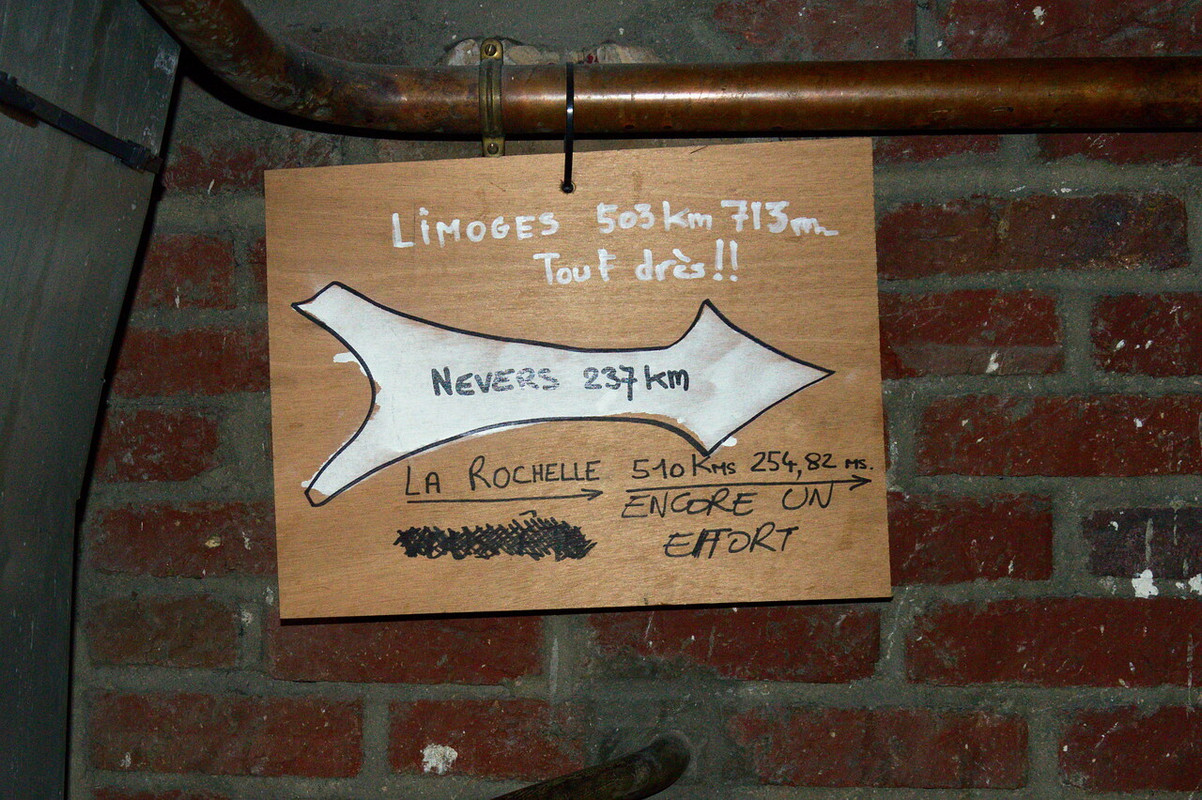 LiMOGES 503km 713m
Tout drès!!
NEVERS 237km
LA ROCHELLE 510KMS 254,82 MS.
ENCORE UN
EFFORT